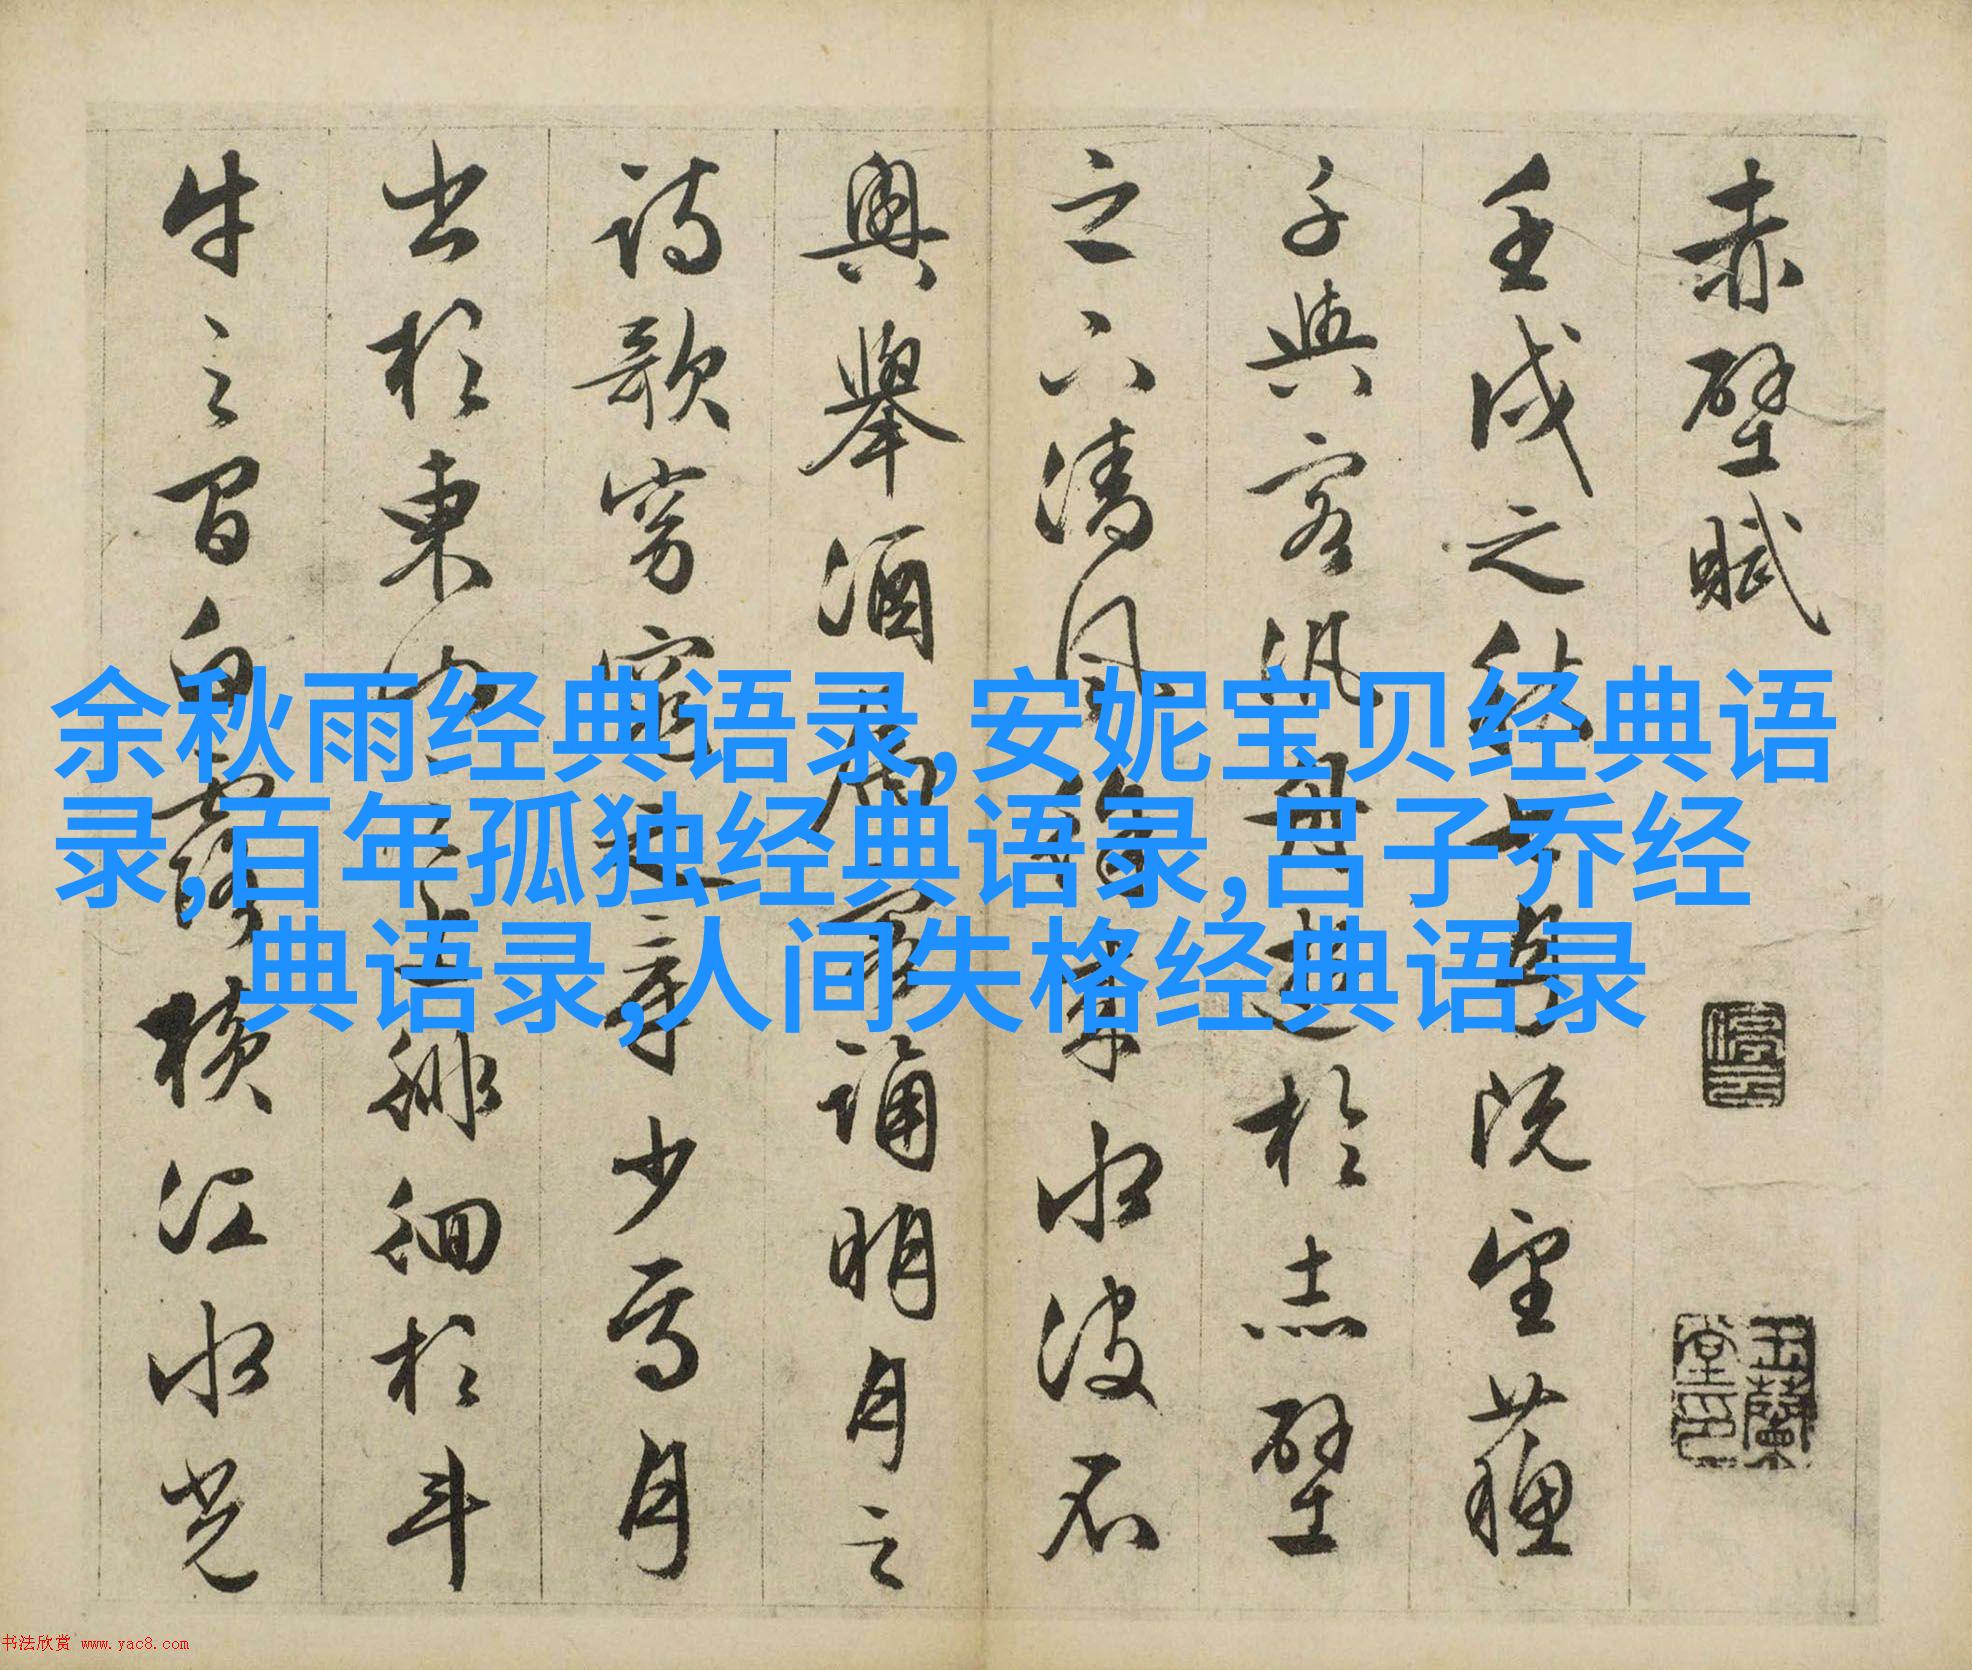 赤壁賦
壬戌之秋七月既望蘇
子與客汎舟遊於赤壁
之下清風徐來水波不
興舉酒屬客誦明月之
詩歌窈窕之章少焉月
出於東山之上徘徊於斗
牛之間白露橫江水光
停云
玉蘭堂印
余秋雨经典语录,安妮宝贝经典语
录,百年孤独经典语录,吕子乔经
典语录,人间失格经典语录
书法欣赏 www.yac8.com